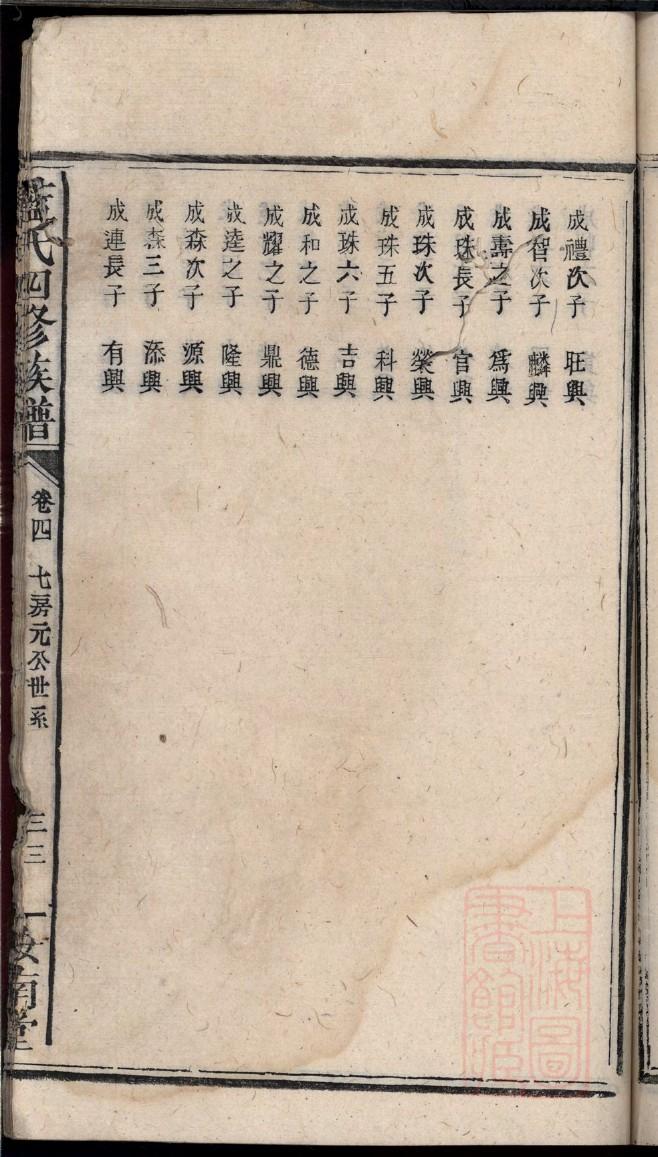 成禮次子 旺興
成智次子 麟興
成壽之子 爲興
成珠長子 官興
成珠次子 榮興
成珠五子 科興
成珠六子 吉興
成和之子 德興
成耀之子 鼎興
成逵之子 隆興
成森次子 源興
成森三子 添興
成連長子 有興
藍氏四修族譜
卷四 七房元公世系
三三
汝南堂
上海圖
書館藏